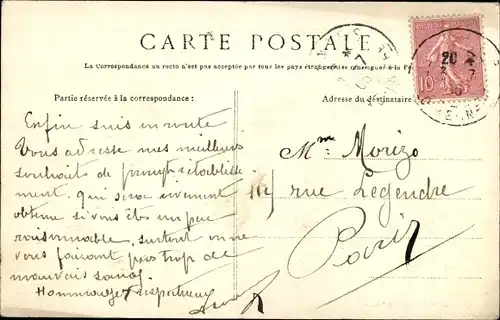 CARTE POSTALE
La Correspondance au recto n'est pas acceptée par tous les pays étrangers se renseigner à la
Partie réservée à la correspondance :
Adresse du destinataire
Enfin suis en route
Vous adresse mes meilleurs
souhaits de prompt rétablisse
ment. qui sera vivement
obtenu si vous êtes un peu
raisonnable, surtout en ne
vous faisant pas trop de
mauvais sang.
Hommages respectueux
Mme Morizo
112 rue Legendre
Paris
10